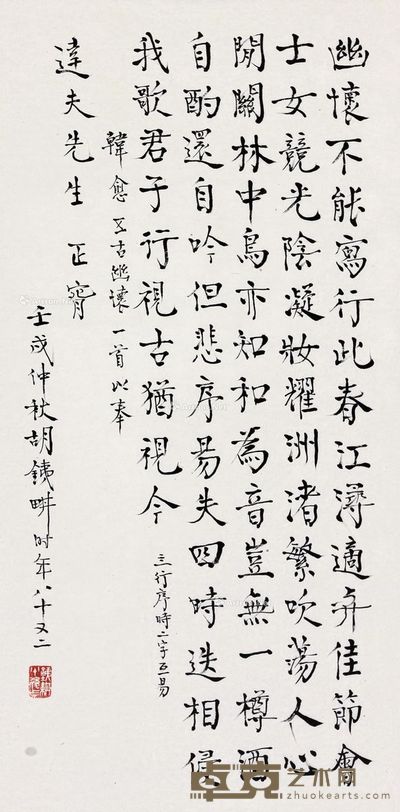 幽懷不能寫行此春江潯適與佳節會
士女競光陰凝妝耀洲渚繁吹蕩人心
間關林中鳥亦知和為音豈無一樽酒
自酌還自吟但悲序易失四時迭相侵
我歌君子行視古猶視今
三行序時二字互易
韓愈五古幽懷一首以奉
達夫先生 正
壬戌仲秋胡銕畊时年八十又二
卓克艺术网
zhuokearts.com